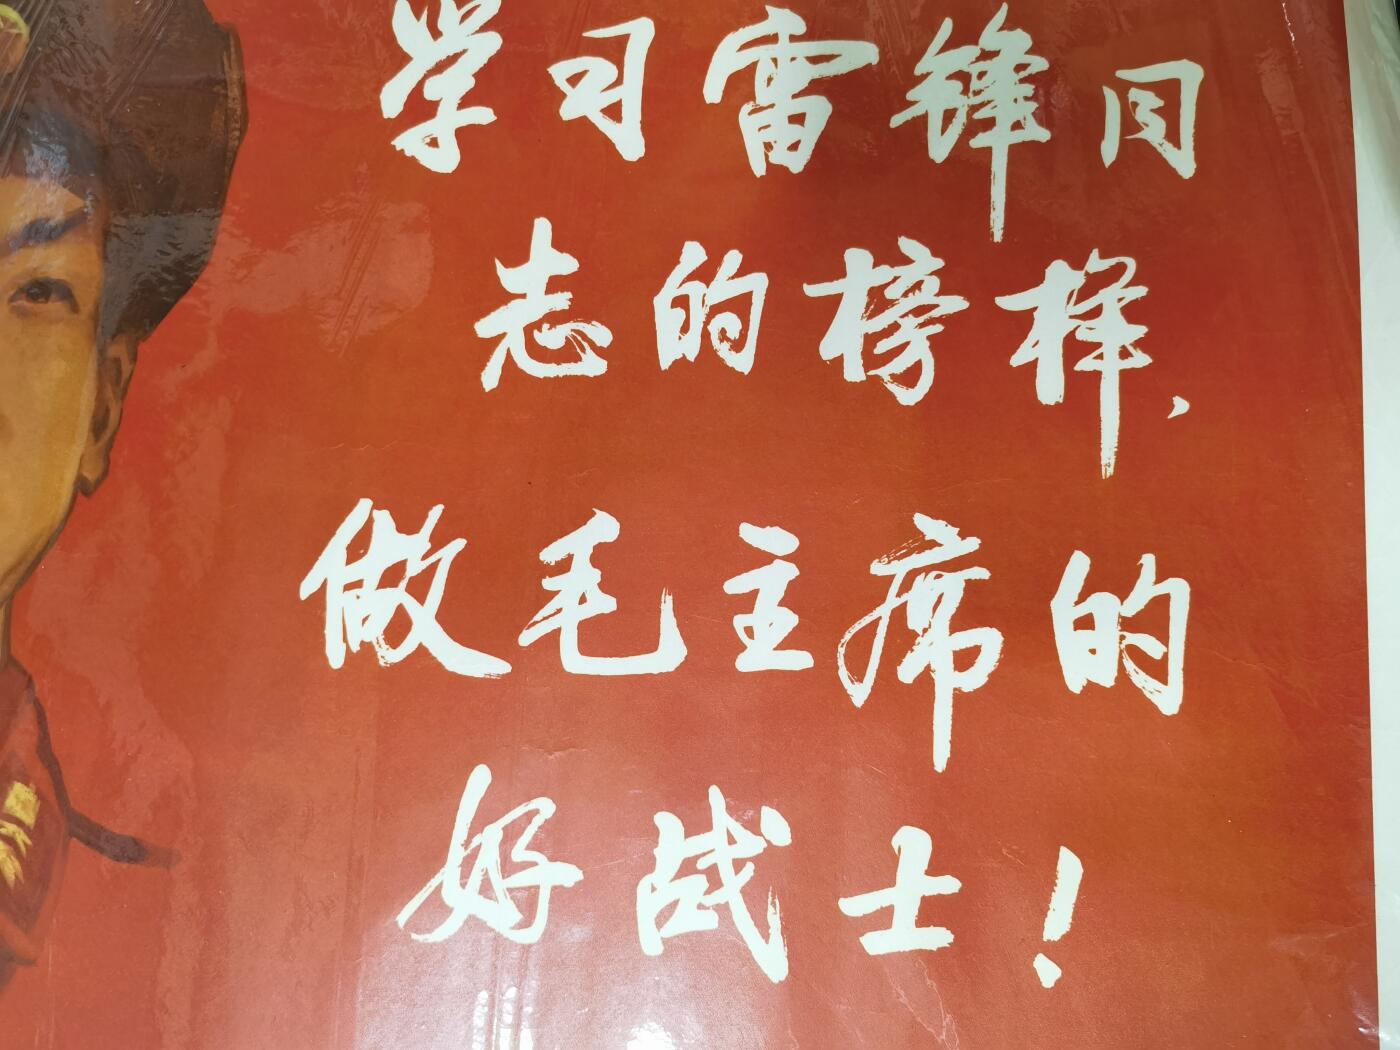 学习雷锋同
志的榜样，
做毛主席的
好战士！